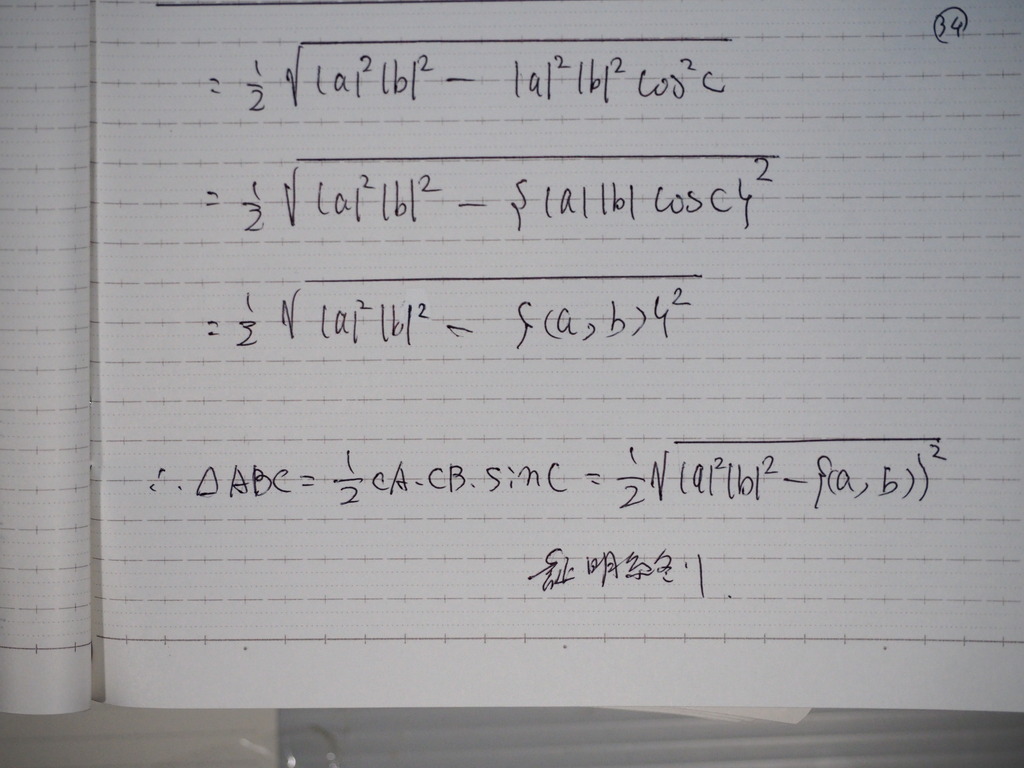 34
= 1/2 √|a|²|b|² − |a|²|b|² cos²C
= 1/2 √|a|²|b|² − {|a||b| cos C}²
= 1/2 √|a|²|b|² − {(a, b)}²
∴ △ABC = 1/2 CA・CB・sinC = 1/2 √|a|²|b|² − {(a, b)}²
証明終わり